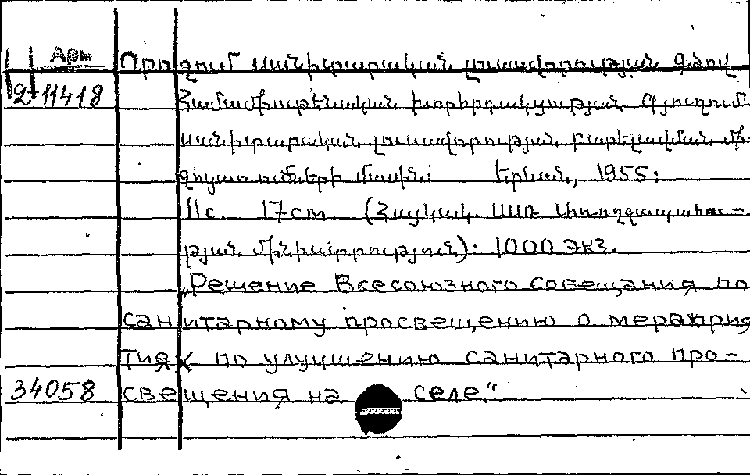 Արև
Որոշում սանիտարական լուսավորության գծով
2-11418 Համամիութենական խորհրդակցության. Գյուղում
սանիտարական լուսավորության բարելավման մի-
ջոցառումների մասին: Երևան, 1955:
11с. 17cm (Հայկական ՍՍՌ Առողջապահու-
թյան մինիստրություն): 1000 экз.
„Решение Всесоюзного совещания по
санитарному просвещению о мероприя
тиях по улучшению санитарного про-
34058 свещения на селе."